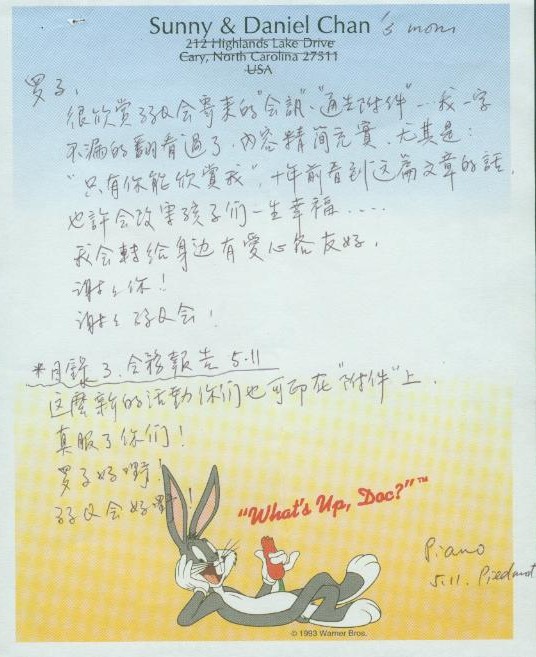 Sunny & Daniel Chan's mom
212 Highlands Lake Drive
Cary, North Carolina 27511
USA
罗子,
很欣赏弱忍会寄来的"会訊"、"通告附件"一我一字
不漏的翻看過了,內容精简充實、尤其是:
"只有你能欣賞我",十年前看到这篇文章的話,
也許会改变孩子们一生幸福……
我会轉给身边有爱心各友好,
謝々你!
謝々 会!
*目錄 3. 会務報告 5.11
这麼新的活動你们也可印在"附件"上.
真服了你们!
罗子好嘢!
会好嘢!
"What's Up, Doc?"™
Piano
5.11. Piedmont
© 1993 Warner Bros.